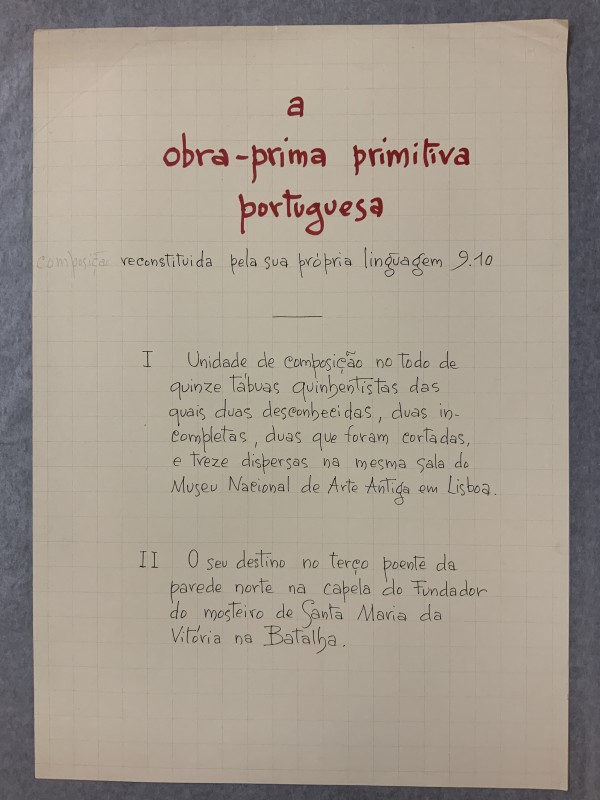 a
obra-prima primitiva
portuguesa
composição reconstituida pela sua própria linguagem 9.10
I Unidade de composição no todo de
quinze tábuas quinhentistas das
quais duas desconhecidas, duas in-
completas, duas que foram cortadas,
e treze dispersas na mesma sala do
Museu Nacional de Arte Antiga em Lisboa.
II O seu destino no terço poente da
parede norte na capela do Fundador
do mosteiro de Santa Maria da
Vitória na Batalha.